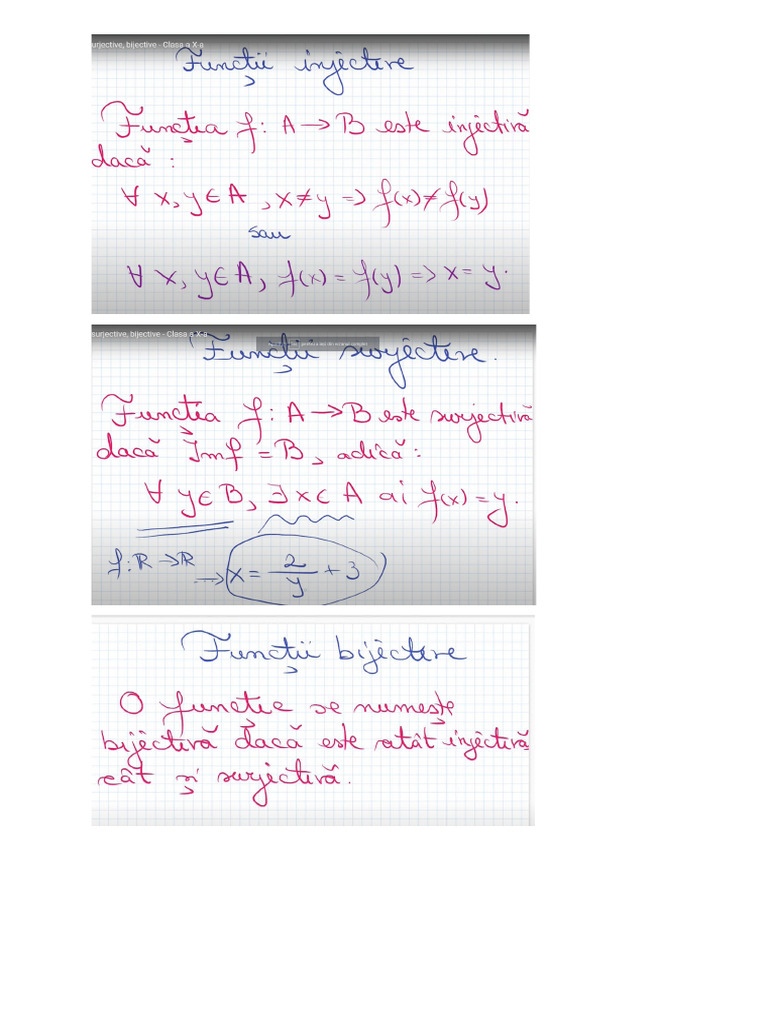 urjective, bijective - Clasa a X-a
Funcții injective
Funcția f: A → B este injectivă
dacă :
∀ x, y ∈ A , x ≠ y => f(x) ≠ f(y)
sau
∀ x, y ∈ A, f(x) = f(y) => x = y.
surjective, bijective - Clasa a X-a
Funcții surjective.
Funcția f: A → B este surjectivă
dacă Imf = B, adică:
∀ y ∈ B, ∃ x ∈ A ai f(x) = y.
f: R → R
→ x = 2/y + 3
Funcții bijective
O funcție se numește
bijectivă dacă este atât injectivă
cât și surjectivă.